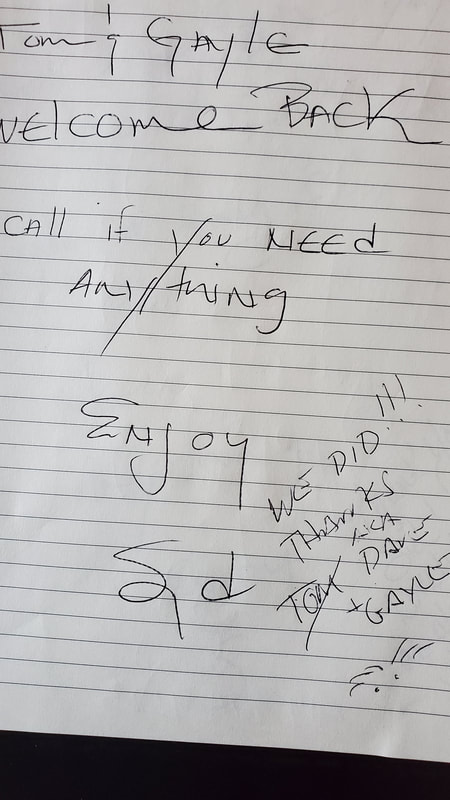 Tom & GAylE
WElcomE BACK
CAll if you NEEd
ANy thiNg
ENjoy
WE DID!!!
THANKS
TOM DAVE
+ GAYLE
!!!